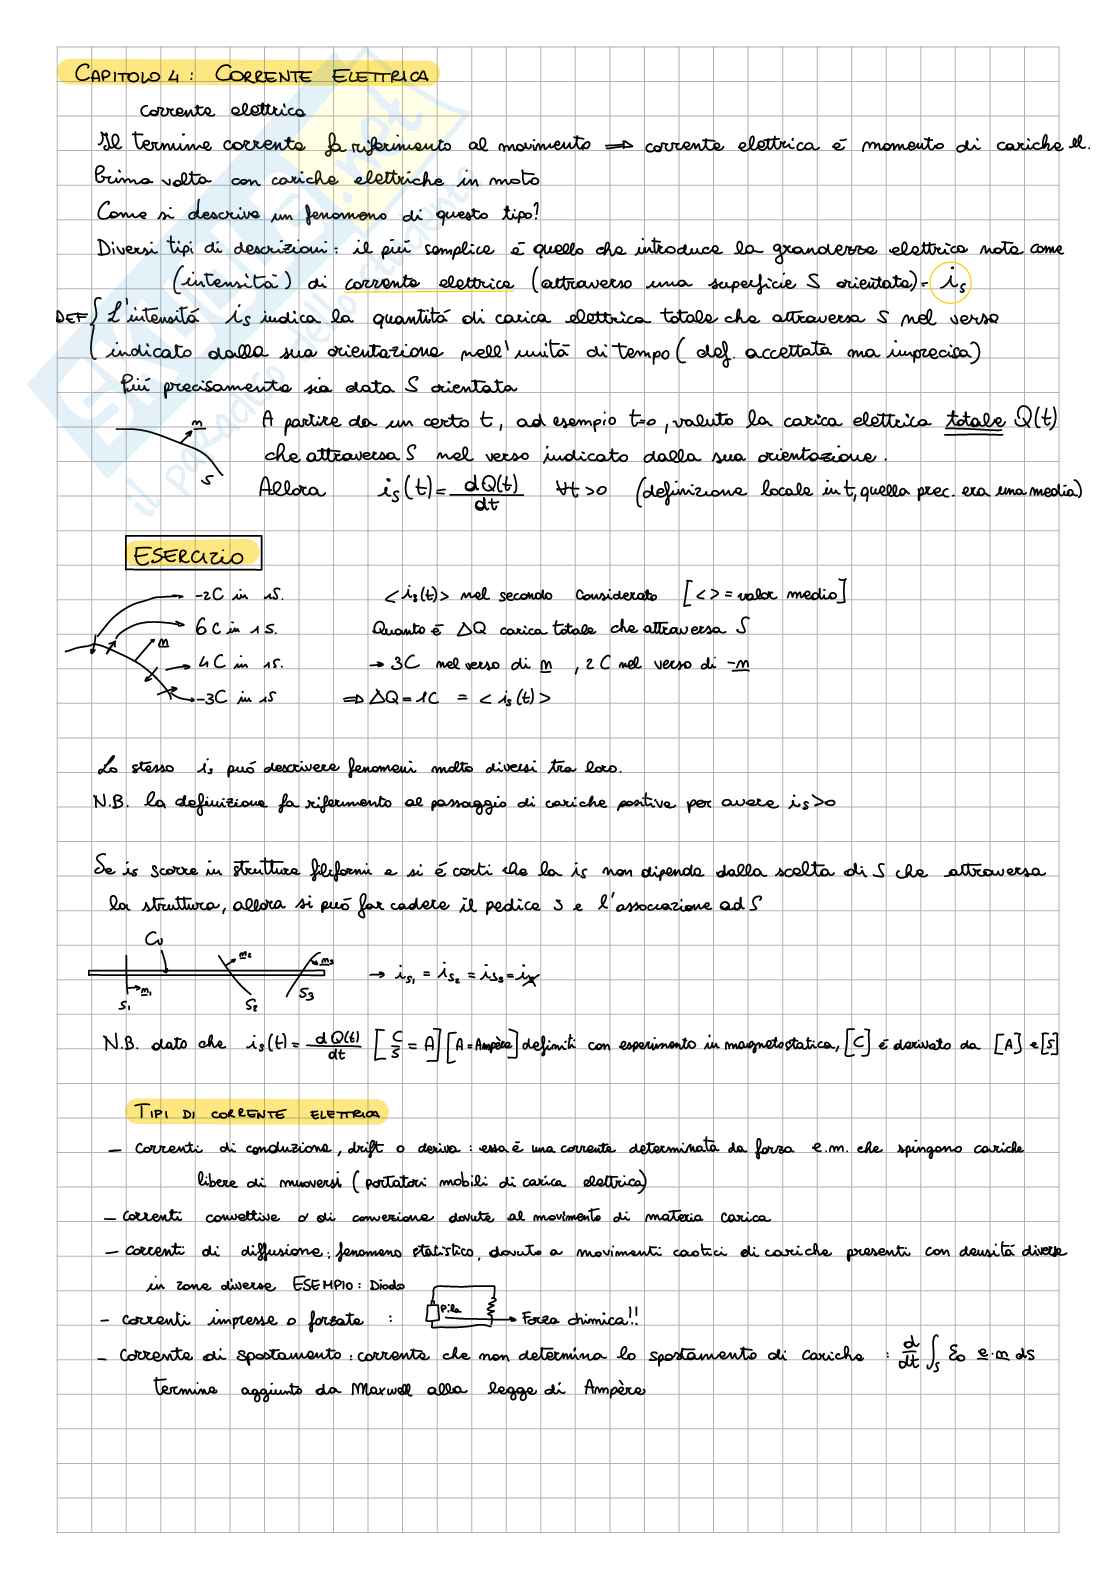 CAPITOLO 4 : CORRENTE ELETTRICA
Corrente elettrica
Il termine corrente fa riferimento al movimento ⇒ corrente elettrica é momento di cariche el.
Prima volta con cariche elettriche in moto
Come si descrive un fenomeno di questo tipo?
Diversi tipi di descrizioni: il piú semplice é quello che introduce la grandezza elettrica nota come
(intensitá) di corrente elettrica (attraverso una superficie S orientata) = is
DEF { L'intensitá is indica la quantitá di carica elettrica totale che attraversa S nel verso
indicato dalla sua orientazione nell'unitá di tempo ( def. accettata ma imprecisa)
Piú precisamente sia data S orientata
n S
A partire da un certo t, ad esempio t=0, valuto la carica elettrica totale Q(t)
che attraversa S nel verso indicato dalla sua orientazione.
Allora is(t) = dQ(t)/dt ∀t>0 (definizione locale in t, quella prec. era una media)
ESERCIZIO
-2C in 1S. <is(t)> nel secondo considerato [<> = valor medio]
6C in 1S. Quanto é ΔQ carica totale che attraversa S
n
4C in 1S. → 3C nel verso di n , 2C nel verso di -n
-3C in 1S ⇒ ΔQ = 1C = <is(t)>
Lo stesso is puó descrivere fenomeni molto diversi tra loro.
N.B. la definizione fa riferimento al passaggio di cariche positive per avere is>0
Se is scorre in strutture filiformi e si é certi che la is non dipende dalla scelta di S che attraversa
la struttura, allora si puó far cadere il pedice S e l'associazione ad S
Cu
n1 S1 n2 S2 n3 S3 → is1 = is2 = is3 = is
N.B. dato che is(t) = dQ(t)/dt [C/S = A] [A = Ampère] definiti con esperimento in magnetostatica, [C] é derivato da [A] e [S]
TIPI DI CORRENTE ELETTRICA
- correnti di conduzione, drift o deriva : essa é una corrente determinata da forza e.m. che spingono cariche
libere di muoversi ( portatori mobili di carica elettrica)
- correnti convettive o di convezione dovute al movimento di materia carica
- correnti di diffusione: fenomeno statistico, dovuto a movimenti caotici di cariche presenti con densitá diverse
in zone diverse ESEMPIO: Diodo
- correnti impresse o forzate : Pila → Forza chimica!!
- corrente di spostamento : corrente che non determina lo spostamento di cariche : d/dt ∫S ε0 e·n dS
termine aggiunto da Maxwell alla legge di Ampère